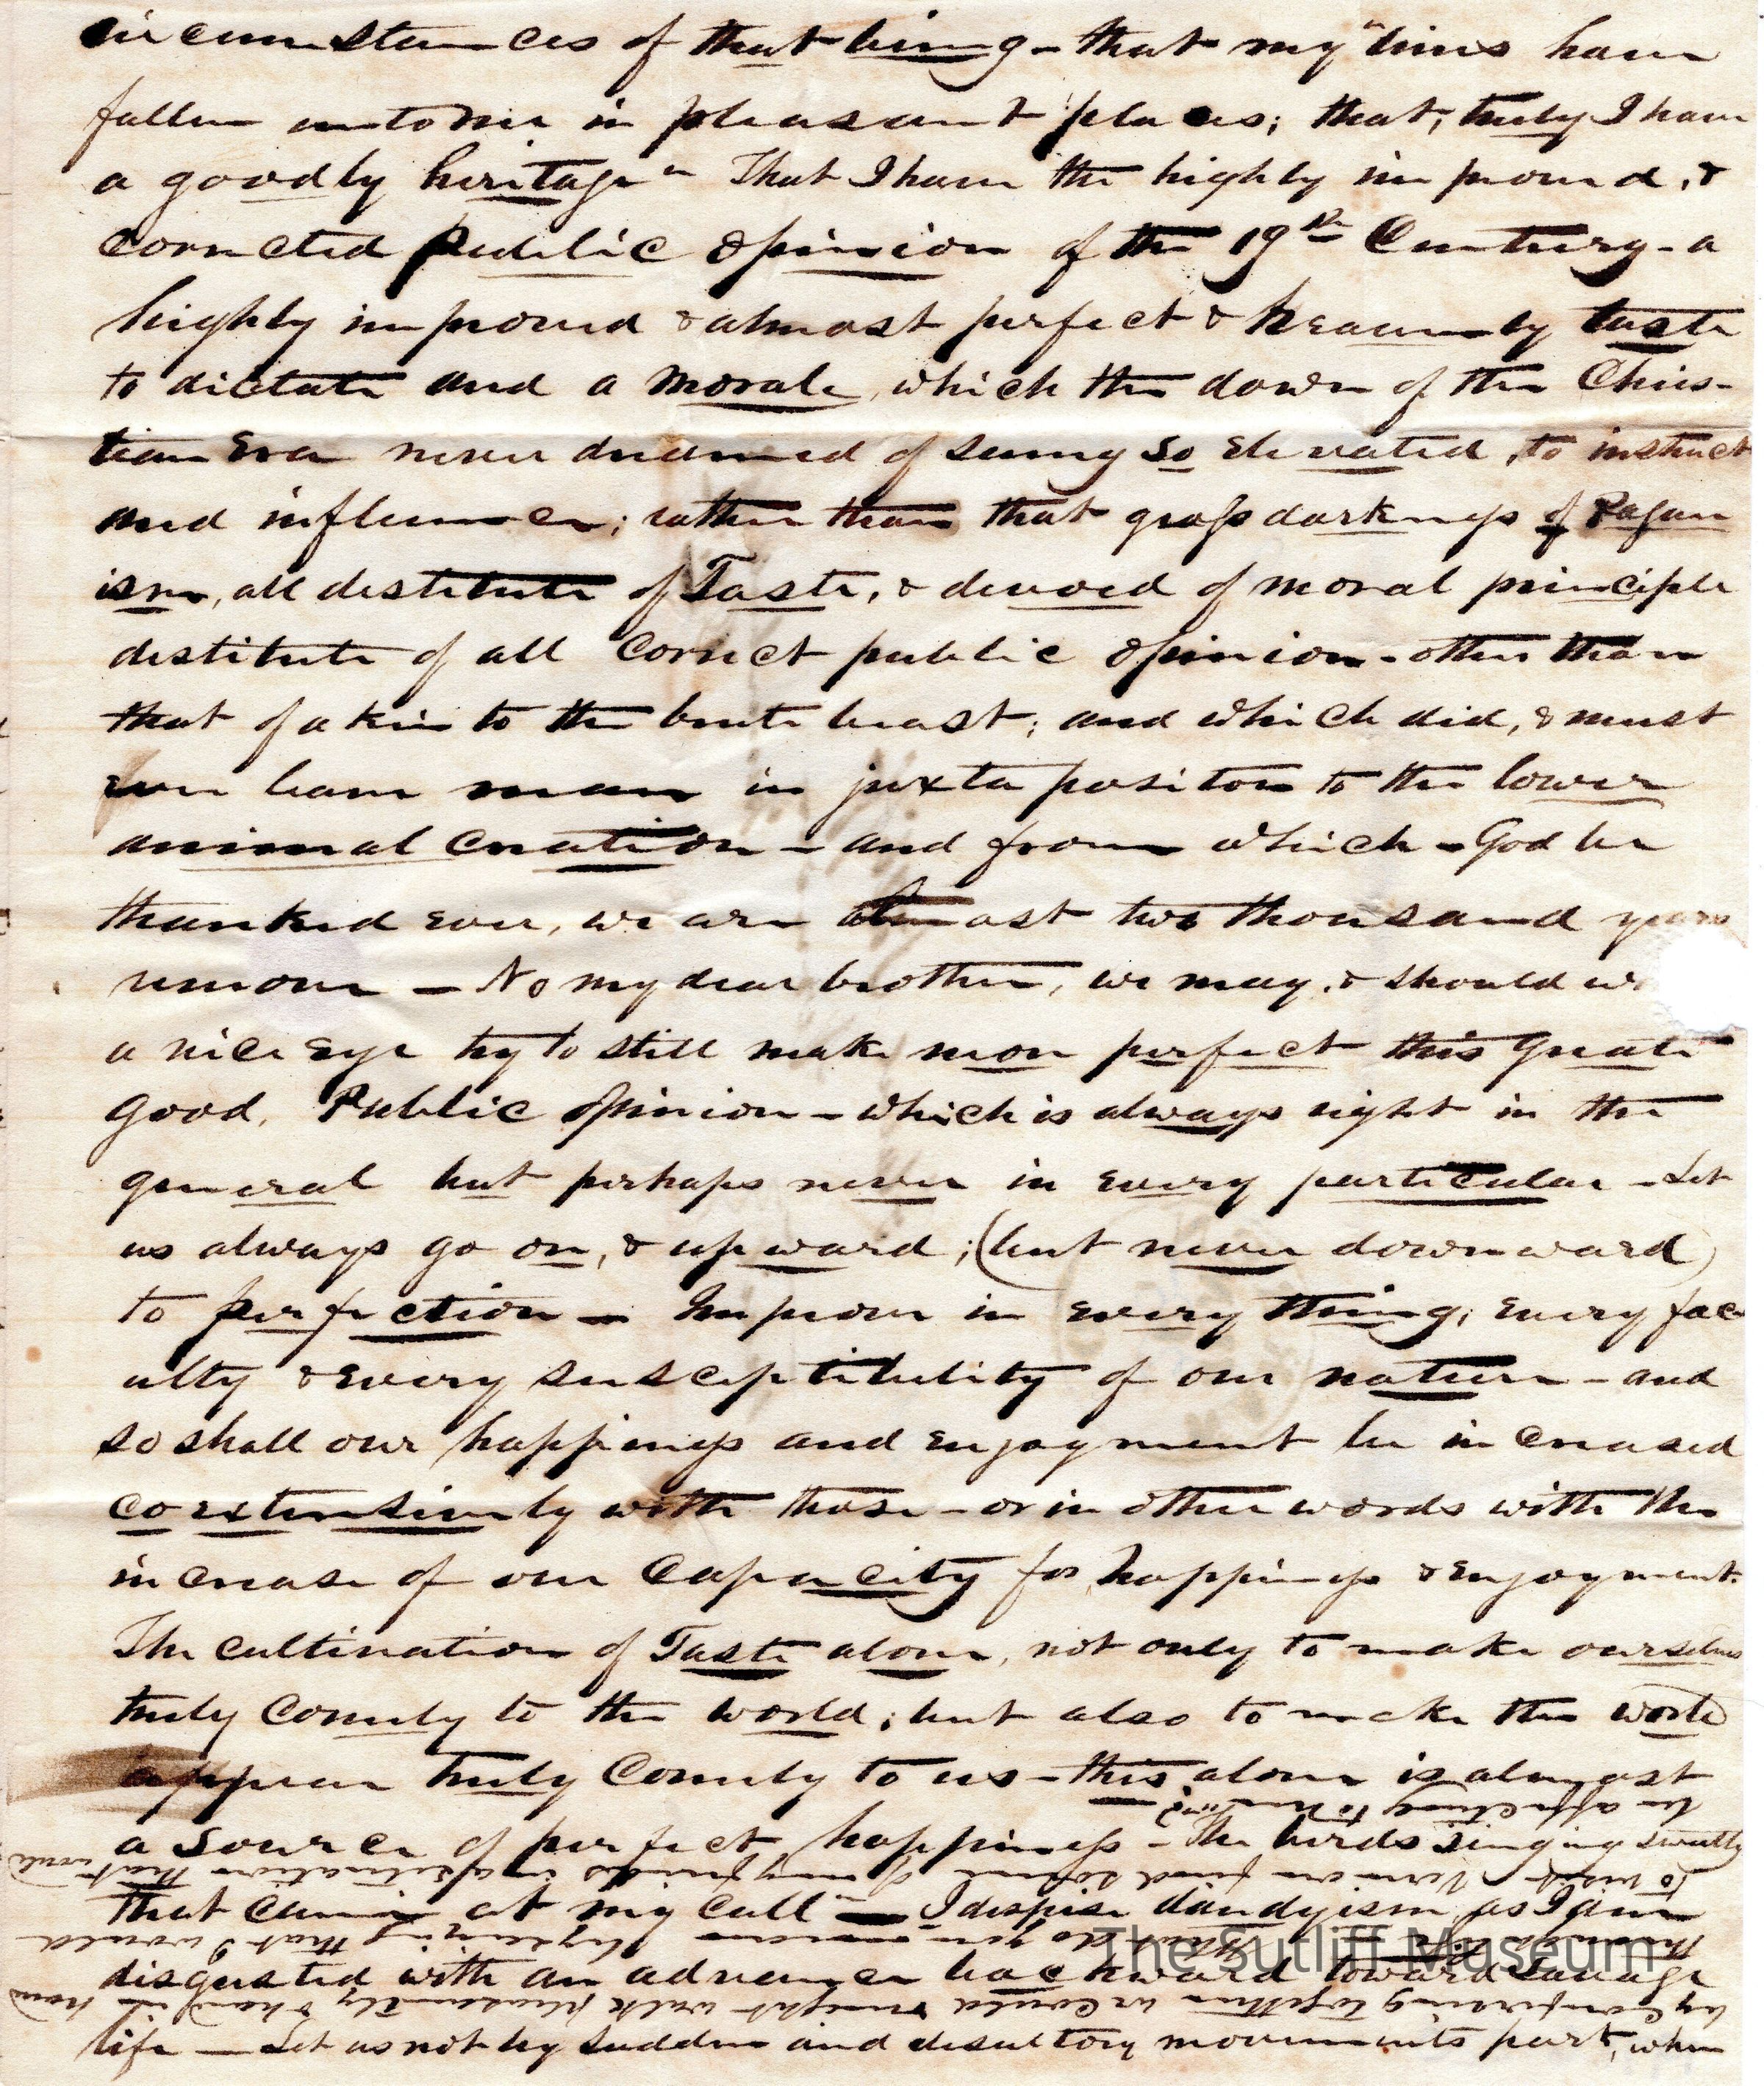 circumstances of that being - that my "lines have
fallen unto me in pleasant places; that, truly I have
a goodly heritage" That I have the highly improved, &
corrected public opinion of the 19th Century - a
highly improved & almost perfect & heavenly taste
to dictate and a morale, which the dawn of the Chris-
tian Era never dreamed of seeing so elevated, to instruct
and influence; rather than that gross darkness of Pagan
ism, all destitute of Taste, & devoid of moral principle
destitute of all correct public opinion - other than
that of akin to the brute beast; and which did, & must
ever leave man in juxta positon to the lower
animal creation - and from which - God be
thanked ever, we are almost two thousand years
remove - No my dear brother, we may, & should
a nice eye try to still make more perfect this great
good, Public opinion - which is always right in the
general but perhaps never in every particular - Let
us always go on, & upward; (but never downward)
to perfection - Improve in every thing; every fac
ulty & every susceptibility of our nature - and
so shall our happiness and enjoyment be increased
coextensively with those - or in other words with the
increase of our capacity for happiness & enjoyment.
The cultivation of Taste alone, not only to make ourselves
truly comely to the world; but also to make the world
appear truly comely to us - this alone is almost
a source of perfect happiness - The birds singing sweetly
that came at my call - I despise dandyism as I am
disgusted with an advance backward toward savage
life - Let us not by sudden and desultory movements part, when
by conversing together we could & might walk pleasantly & hand in hand
that I would
to visit Vernon find some of my friends in a situation that would
be affecting to me
The Sutliff Museum